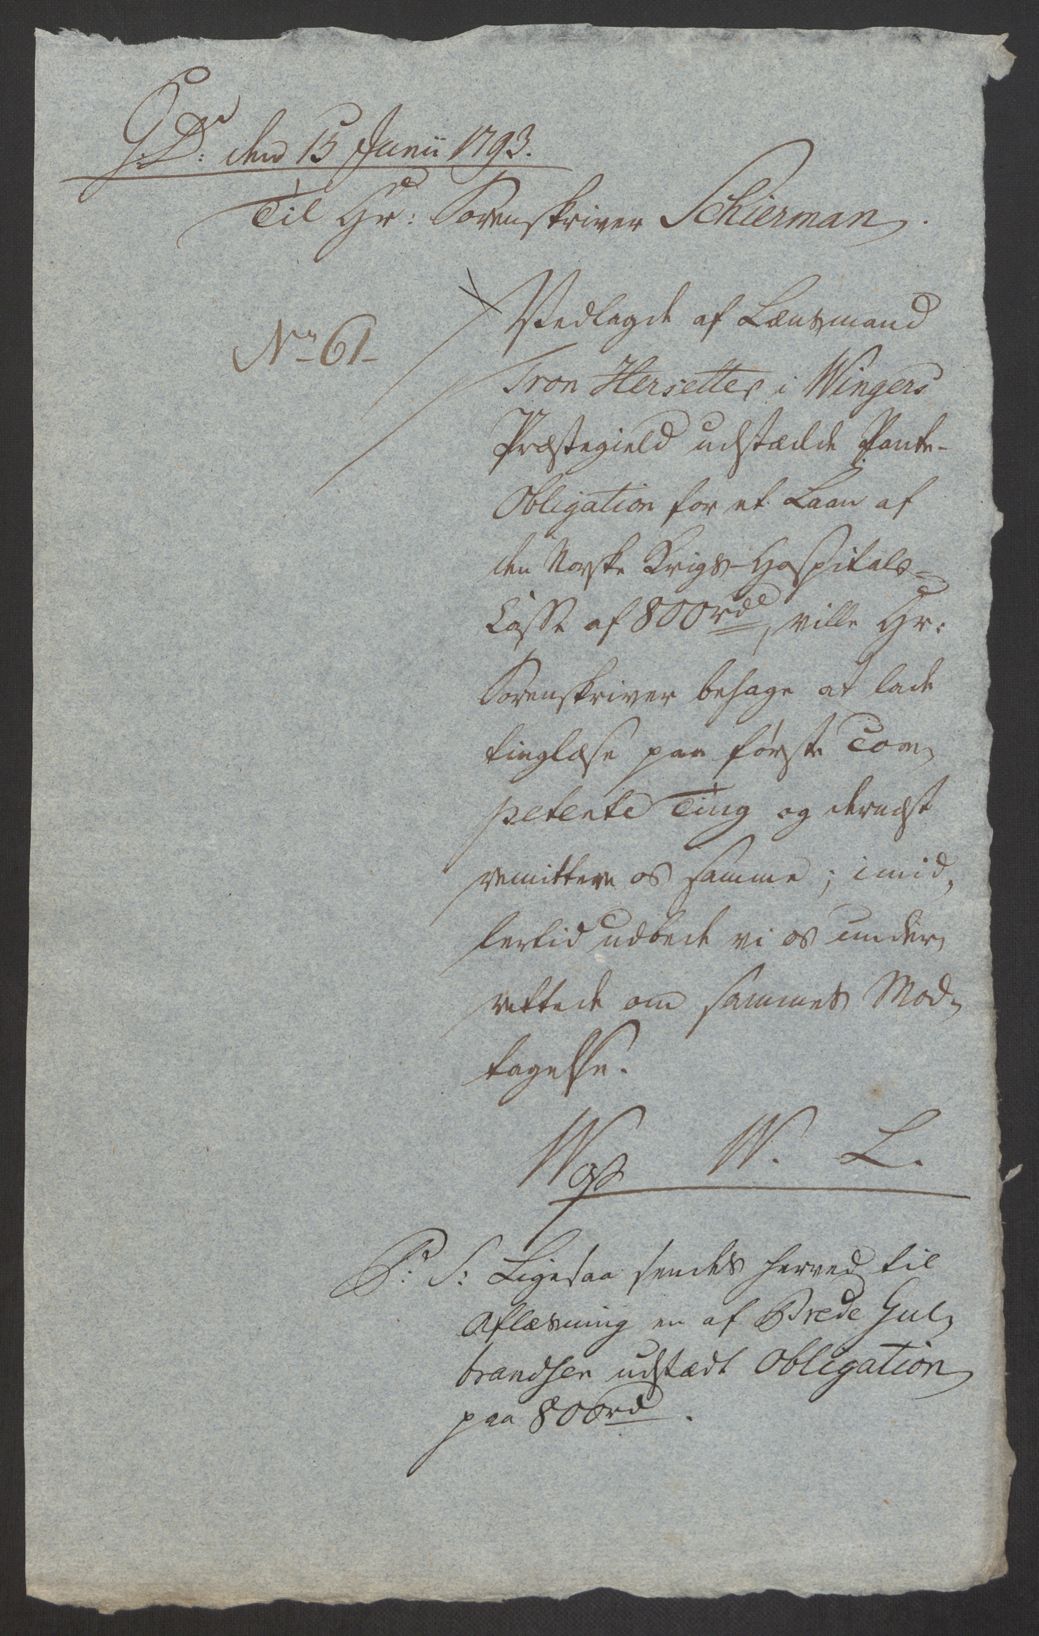 G: D: den 15 Junii 1793.
Til Hr: Sorenskriver Schierman.
No 61
Vedlagde af Lænsmand
Tron Hersetter i Wingers
Præstegield udstædde Pante-
Obligation for et Laan af
den Norske Krigs-Hospitals-
Casse af 800 rdr, ville Hr:
Sorenskriver behage at lade
tinglæse paa første Com-
petente Ting og dernæst
remittere os samme; imid-
lertid udbede vi os under-
rettede om sammes Mod-
tagelse.
W. L.
P: S: Ligesaa sendes herved til
Aflæsning en af Prede Gul-
brandsen udstædt Obligation
paa 800 rd.